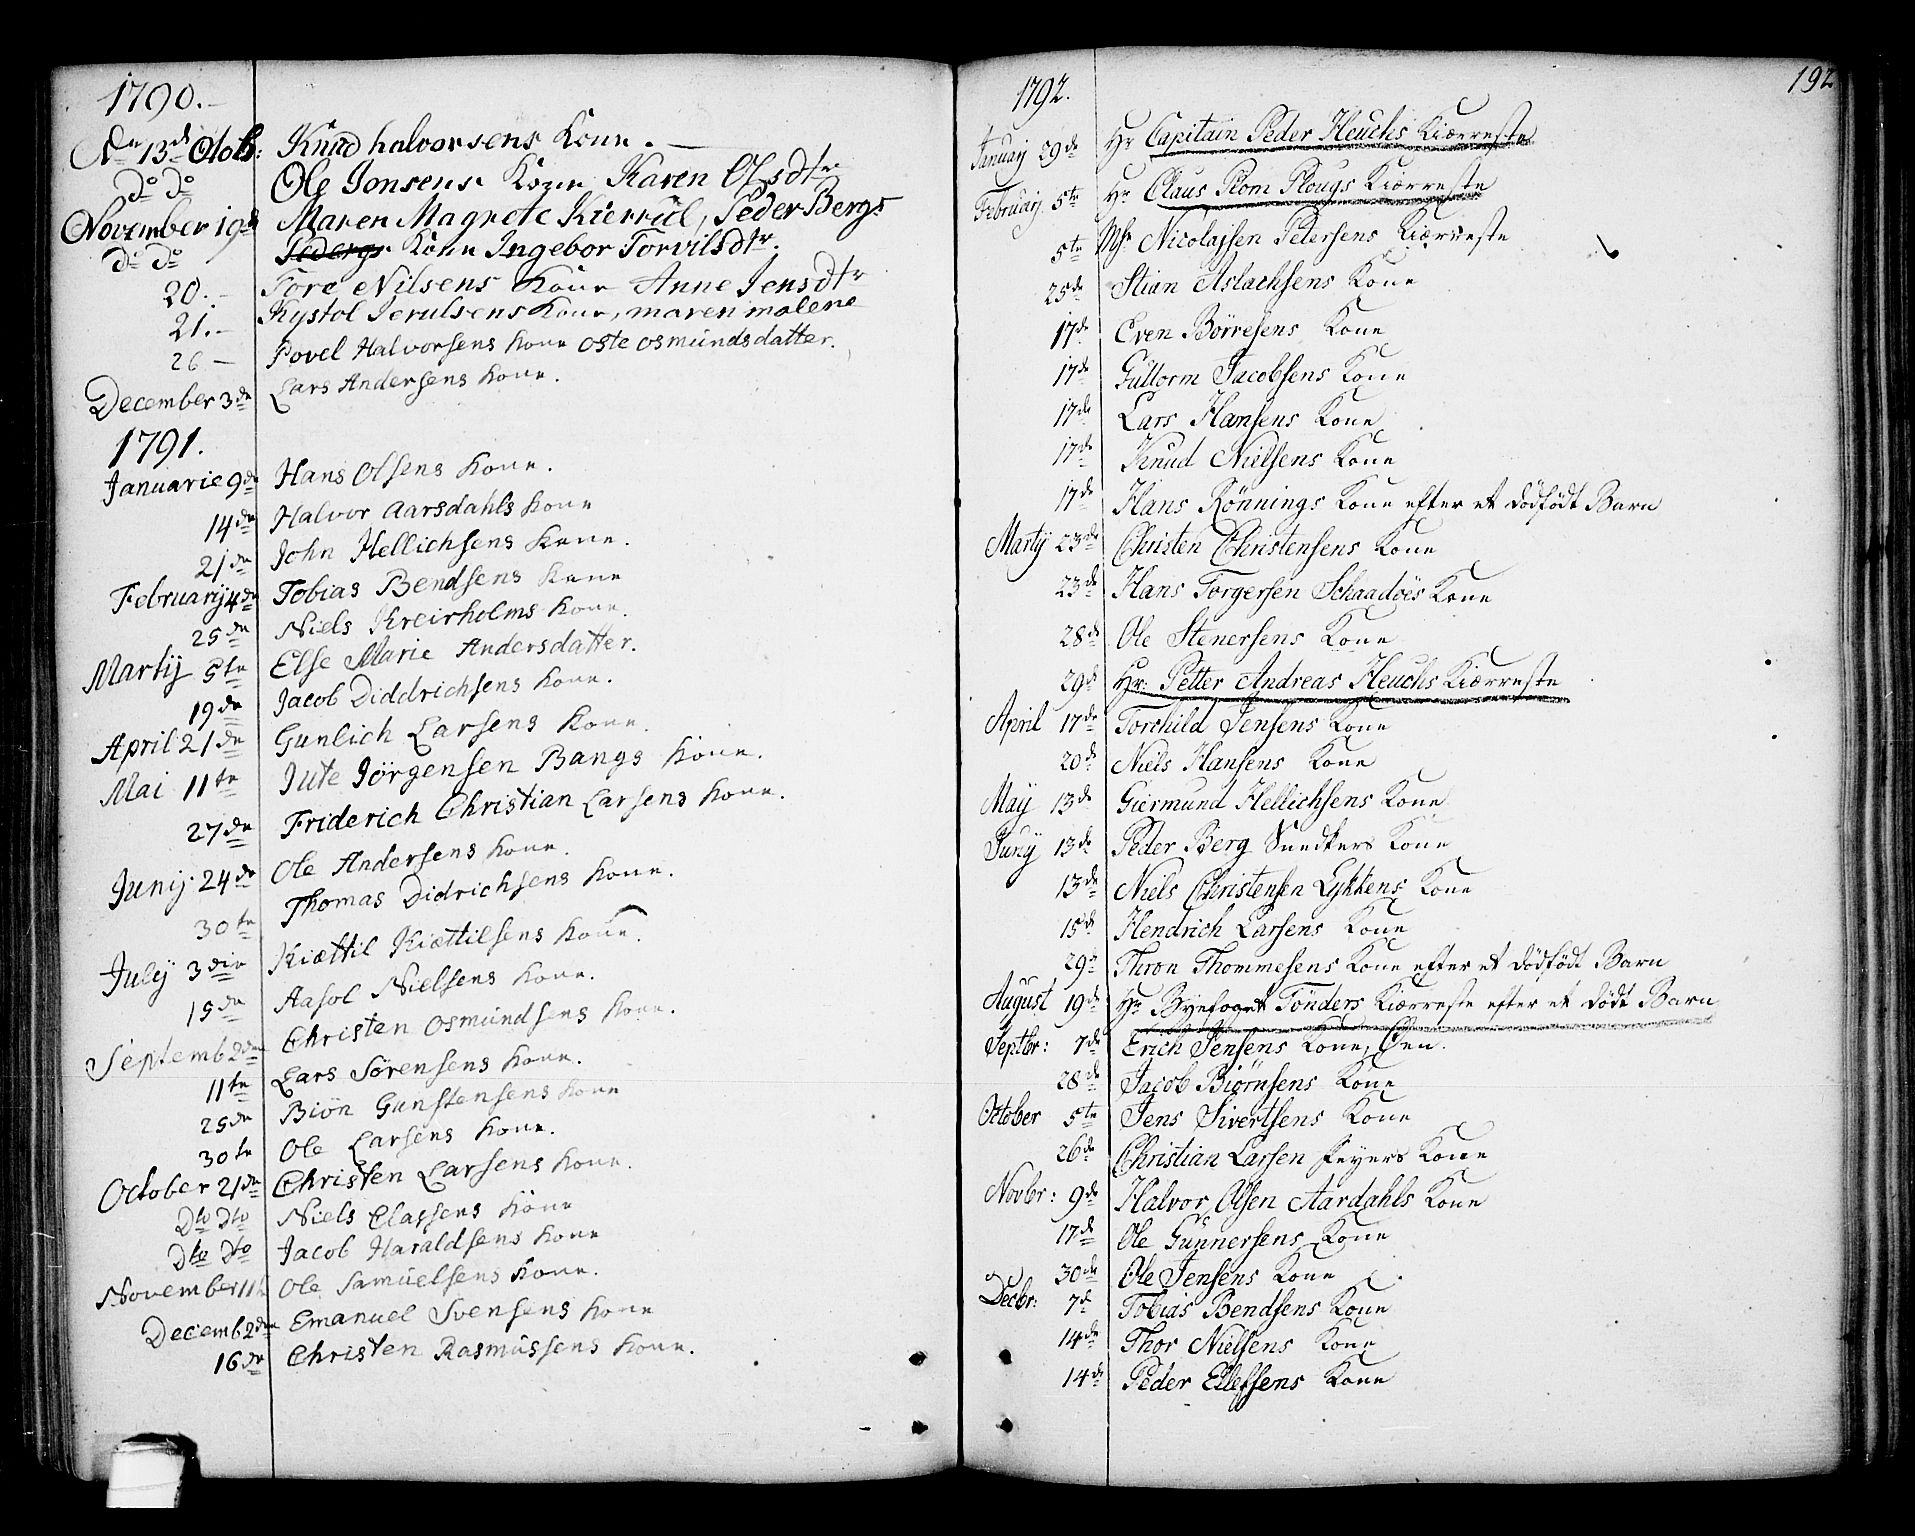 1790.
Dn 13d Octob: Knud halvorsens Kone.
do do Ole Jonsens Kone Karen Olsdtr
November 19d Maren Magrete Kierrul, Peder Bergs
do do Kone Ingebor Torvilsdtr.
20. Tore Nilsens Kone Anne Jensdtr
21. Kystol Jerulsens Kone, maren malene
26 Povel Halvorsens Kone oste osmundsdatter.
December 3de Lars Andersens Kone.
1791.
Januarie 9de Hans Olsens Kone.
14de Halvor Aarsdahls Kone
21de John Hellichsens Kone.
Februarij 4de Tobias Bendsens Kone
25de Niels Kreirholms Kone.
Martij 5te Else Marie Andersdatter.
19de Jacob Diddrichsens Kone.
April 21de Gunlich Larsens Kone.
Mai 11te Jute Jörgensen Bangs Kone.
27de Friderich Christian Larsens Kone.
Junij. 24de Ole Andersens Kone.
30te Thomas Didrichsens Kone.
July 3die Kiættil Kiættilsens Kone.
15de Aasol Nielsens Kone.
Septemb 2den Christen Osmundsens Kone.
11te Lars Sörensens Kone.
25de Biön Gunstensens Kone
30te Ole Larsens Kone.
October 21de Christen Larsens Kone.
Dto Dto Niels Classens Kone
Dto Dto Jacob Haraldsens Kone
November 11te Ole Samuelsens Kone.
Decemb 2den Emanuel Svensens Kone
16de Christen Rasmussens Kone.
192
1792.
Januarij 29de Hr Capitain Peder Heuchs Kiærreste
Februarij 5te Hr Claus Plom Plougs Kiærreste
5te Mhr Nicolajsen Petersens Kiærreste
25de Stian Aslachsens Kone
17de Even Börresens Kone
17de Guttorm Jacobsens Kone
17de Lars Hansens Kone
17de Knud Nielsens Kone
17de Hans Rönnings Kone efter et dödfödt Barn
Martij 23de Christen Christensens Kone
23de Hans Torgersen Schaadöes Kone
28de Ole Stenersens Kone
29de Hr: Petter Andreas Heuchs Kiærreste
April 17de Torchild Jensens Kone
20de Niels Hansens Kone
May 13de Giermund Hellichsens Kone
Juny 13de Peder Berg Snedkers Kone
13de Niels Christensen Lykkens Kone
15de Hendrich Larsens Kone
29de Thron Thommesens Kone efter et dödfödt Barn
August 19de Hr Byefoget Tönders Kiærreste efter et dödt Barn
Septbr: 7de Erich Jensens Kone, Öen.
28de Jacob Biörnsens Kone
October 5te Jens Sivertsens Kone
26de Christian Larsen Feyers Kone
Novbr: 9de Halvor Olsen Aardahls Kone
17de Ole Gunnersens Kone
30de Ole Jensens Kone
Decbr: 7de Tobias Bendsens Kone
14de Thor Nielsens Kone
14de Peder Ellefsens Kone